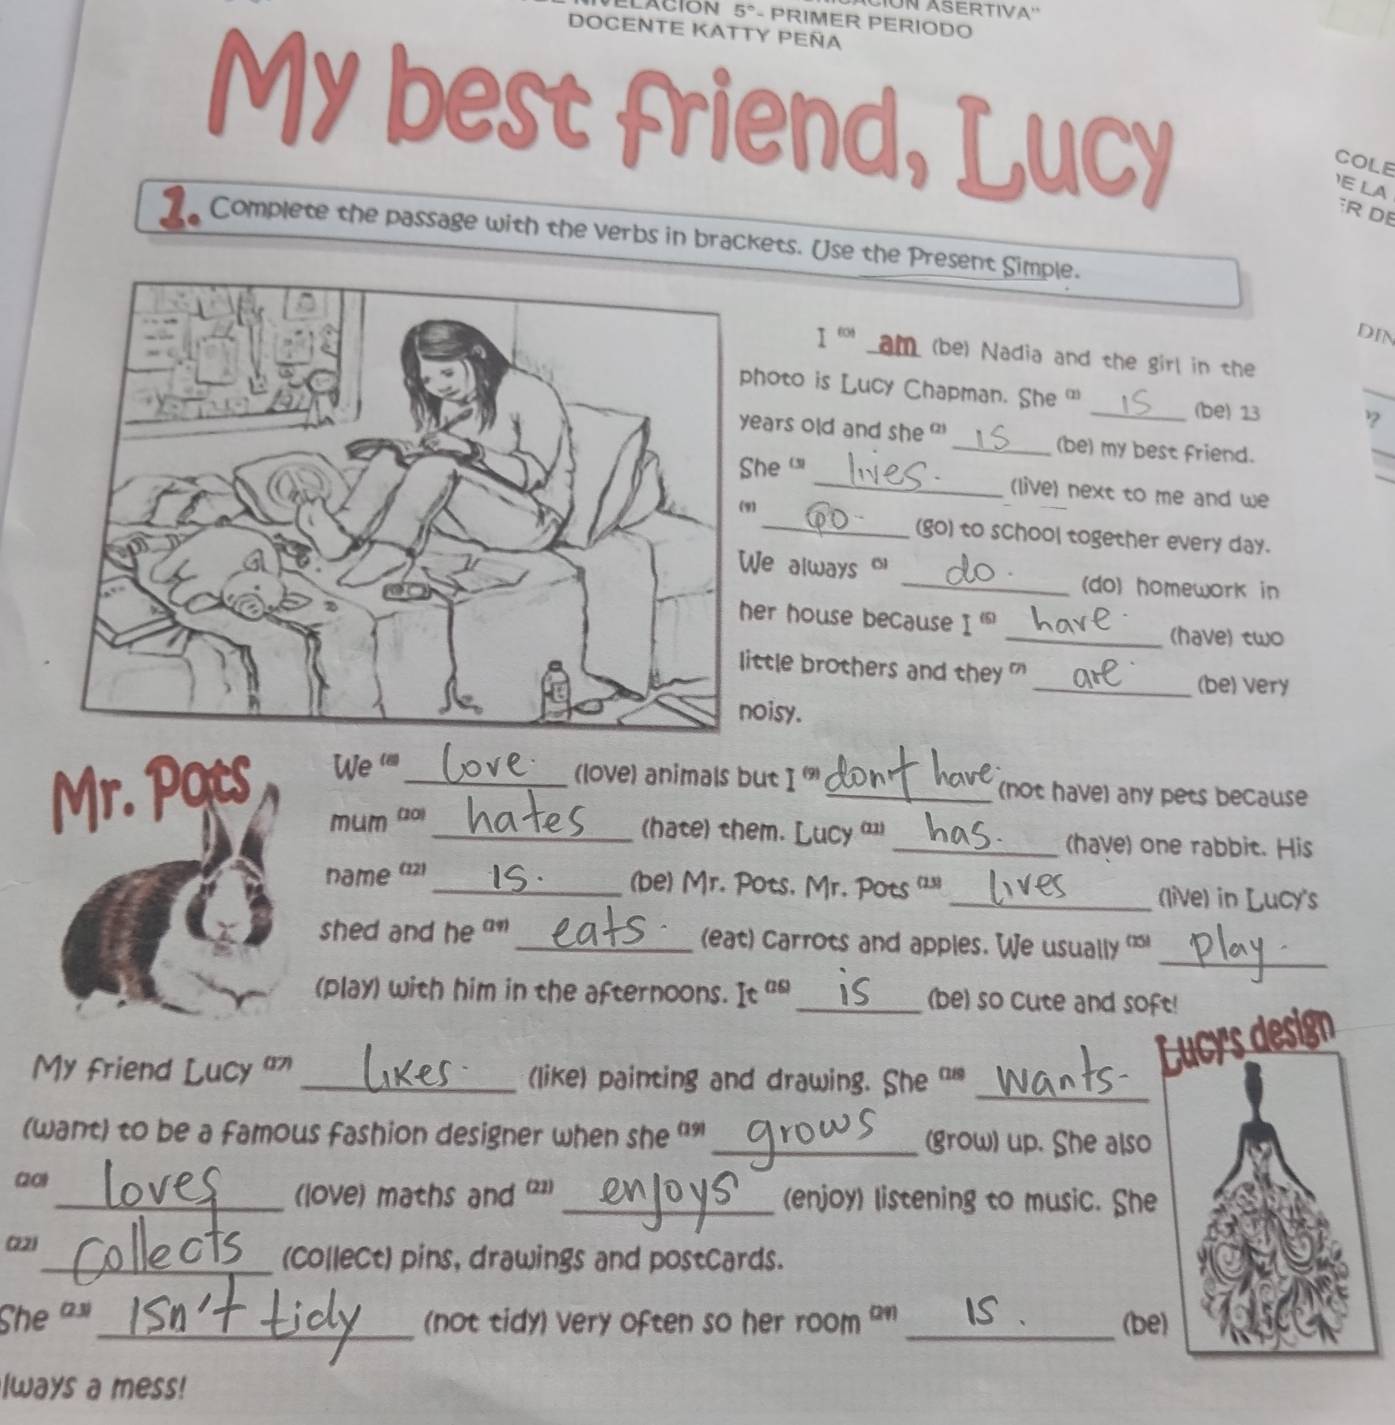 ACIÓN ASERTIVA"
NIVELACIÓN 5°- PRIMER PERIODO
DOCENTE KATTY PEÑA
My best friend, Lucy
COLE
E LA
ER DE
1. Complete the passage with the verbs in brackets. Use the Present Simple.
DIN
I (0) am (be) Nadia and the girl in the
photo is Lucy Chapman. She (1) is (be) 23
years old and she (2) is (be) my best friend.
She (3) lives. (live) next to me and we
(4) go. (go) to school together every day.
We always (5) do. (do) homework in
her house because I (6) have. (have) two
little brothers and they (7) are. (be) very
noisy.
Mr. Pots
We (8) love. (love) animals but I (9) don't have. (not have) any pets because
mum (10) hates (hate) them. Lucy (11) has. (have) one rabbit. His
name (12) is. (be) Mr. Pots. Mr. Pots (13) lives (live) in Lucy's
shed and he (14) eats. (eat) carrots and apples. We usually (15) play.
(play) with him in the afternoons. It (16) is (be) so cute and soft!
Lucy's design
My friend Lucy (17) likes. (like) painting and drawing. She (18) wants-
(want) to be a famous fashion designer when she (19) grows (grow) up. She also
(20) loves (love) maths and (21) enjoys (enjoy) listening to music. She
(22) collects (collect) pins, drawings and postcards.
She (23) isn't tidy (not tidy) very often so her room (24) is. (be)
lways a mess!